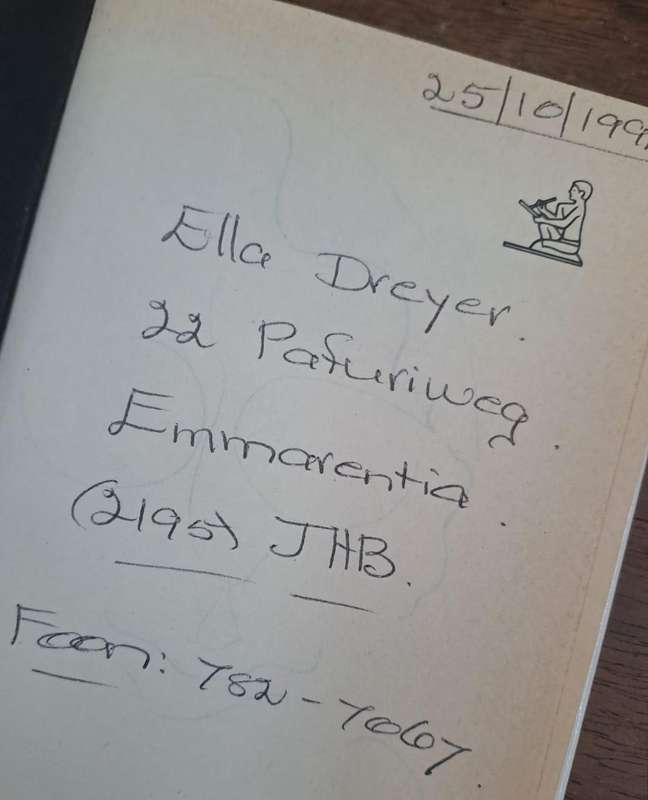 25/10/199
Ella Dreyer.
22 Pafuriweg.
Emmarentia.
(2195) JHB.
Foon: 782-7067.